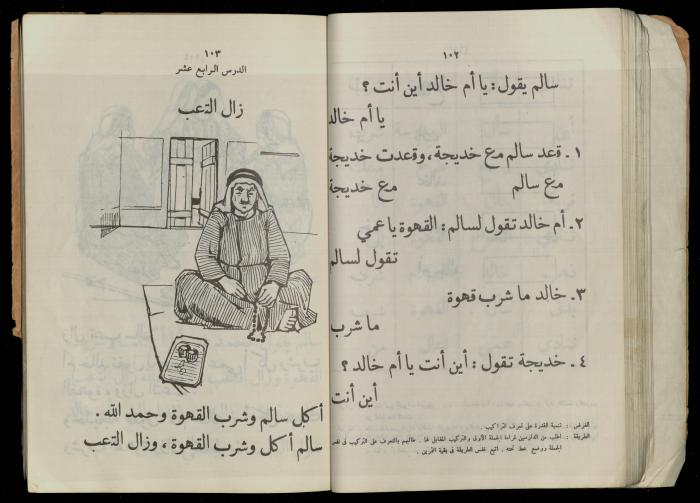 ١٠٢
سالم يقول : يا أم خالد أين أنت ؟
يا أم خالد
١ ـ قعد سالم مع خديجة ، وقعدت خديجة
مع سالم مع خديجة
٢ ـ أم خالد تقول لسالم : القهوة يا عمي
تقول لسالم
٣ ـ خالد ما شرب قهوة
ما شرب
٤ ـ خديجة تقول : أين أنت يا أم خالد ؟
أين أنت
الغرض : تنمية القدرة على تعرف التراكيب .
الطريقة : اطلب من الدارسين قراءة الجملة الأولى والتركيب المقابل لها . طالبهم بالتعرف على التركيب في نفس
الجملة ووضع خط تحته . اتبع نفس الطريقة في بقية التمرين .
١٠٣
الدرس الرابع عشر
زال التعب
أكل سالم وشرب القهوة وحمد الله .
سالم أكل وشرب القهوة ، وزال التعب